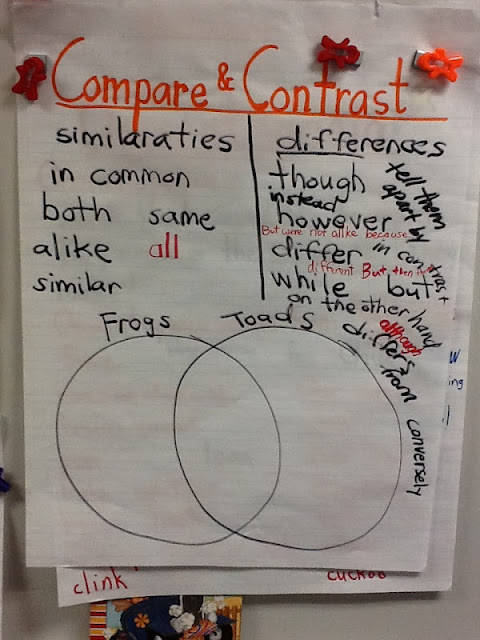 Compare & Contrast
similaraties
in common
both same
alike all
similar
differences
though
tell them
apart by
instead
however
But were not alike because
differ
in contrast
different But then
while but
on the other hand
although
differs
from
conversely
Frogs Toads
clink
cuckoo